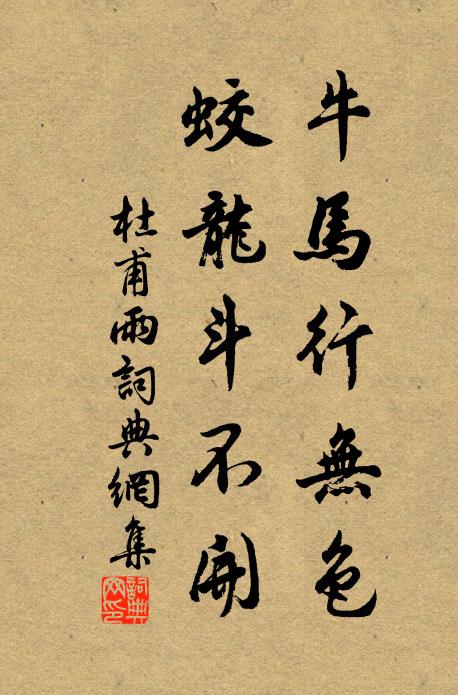 牛馬行無色
蛟龍斗不開
杜甫雨詞典網集
詞典
网印